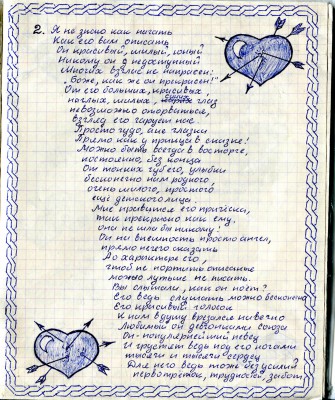 2. Я не знаю как начать
Как его вам описать
Он красивый, милый, юный
Никому он не доступный
Многих взгляд не напрасен;
„Боже, как же он прекрасен!"
От его больших, красивых,
наглых, милых, синих глаз
невозможно оторваться,
взгляд его чарует нас
Просто чудо, а не глазки
Прямо как у принца в сказке!
Можно быть всегда в восторге,
постоянно, без конца
От тонких губ его, улыбки
бесконечно ним родного
очень милого, простого
ещё детского лица.
Мне нравится его причёска,
так прекрасно как ему,
она не шла бы никому!
Он на внешность просто ангел,
прямо нечего сказать
А о характере его,
чтоб не портить описанье
можно лучше не писать.
Вы слышали, как он поёт?
Его ведь слушать можно бесконечно
Его красивый голосок
К нам в душу врезался навечно
Любимый он девчонками союза
Он - популярнейший певец
И грустят ведь под его ногами
тысячи и тысячи сердец
Для него ведь тоже без усилий
нервотрёпок, трудностей, забот